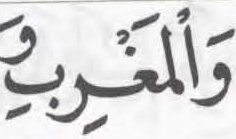 وَالْمَغْرِبِ وَ